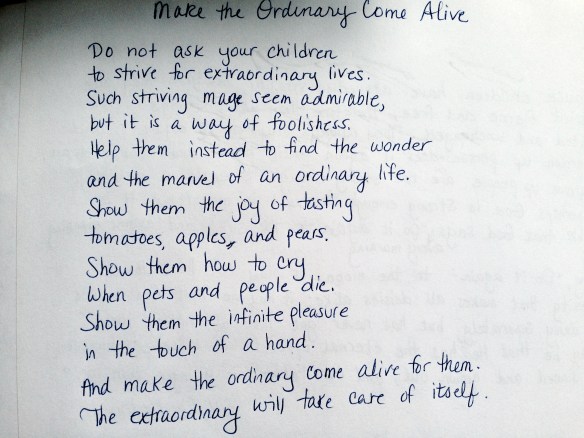 Make the Ordinary Come Alive
Do not ask your children
to strive for extraordinary lives.
Such striving mage seem admirable,
but it is a way of foolishess.
Help them instead to find the wonder
and the marvel of an ordinary life.
Show them the joy of tasting
tomatoes, apples, and pears.
Show them how to cry
When pets and people die.
Show them the infinite pleasure
in the touch of a hand.
And make the ordinary come alive for them.
The extraordinary will take care of itself.